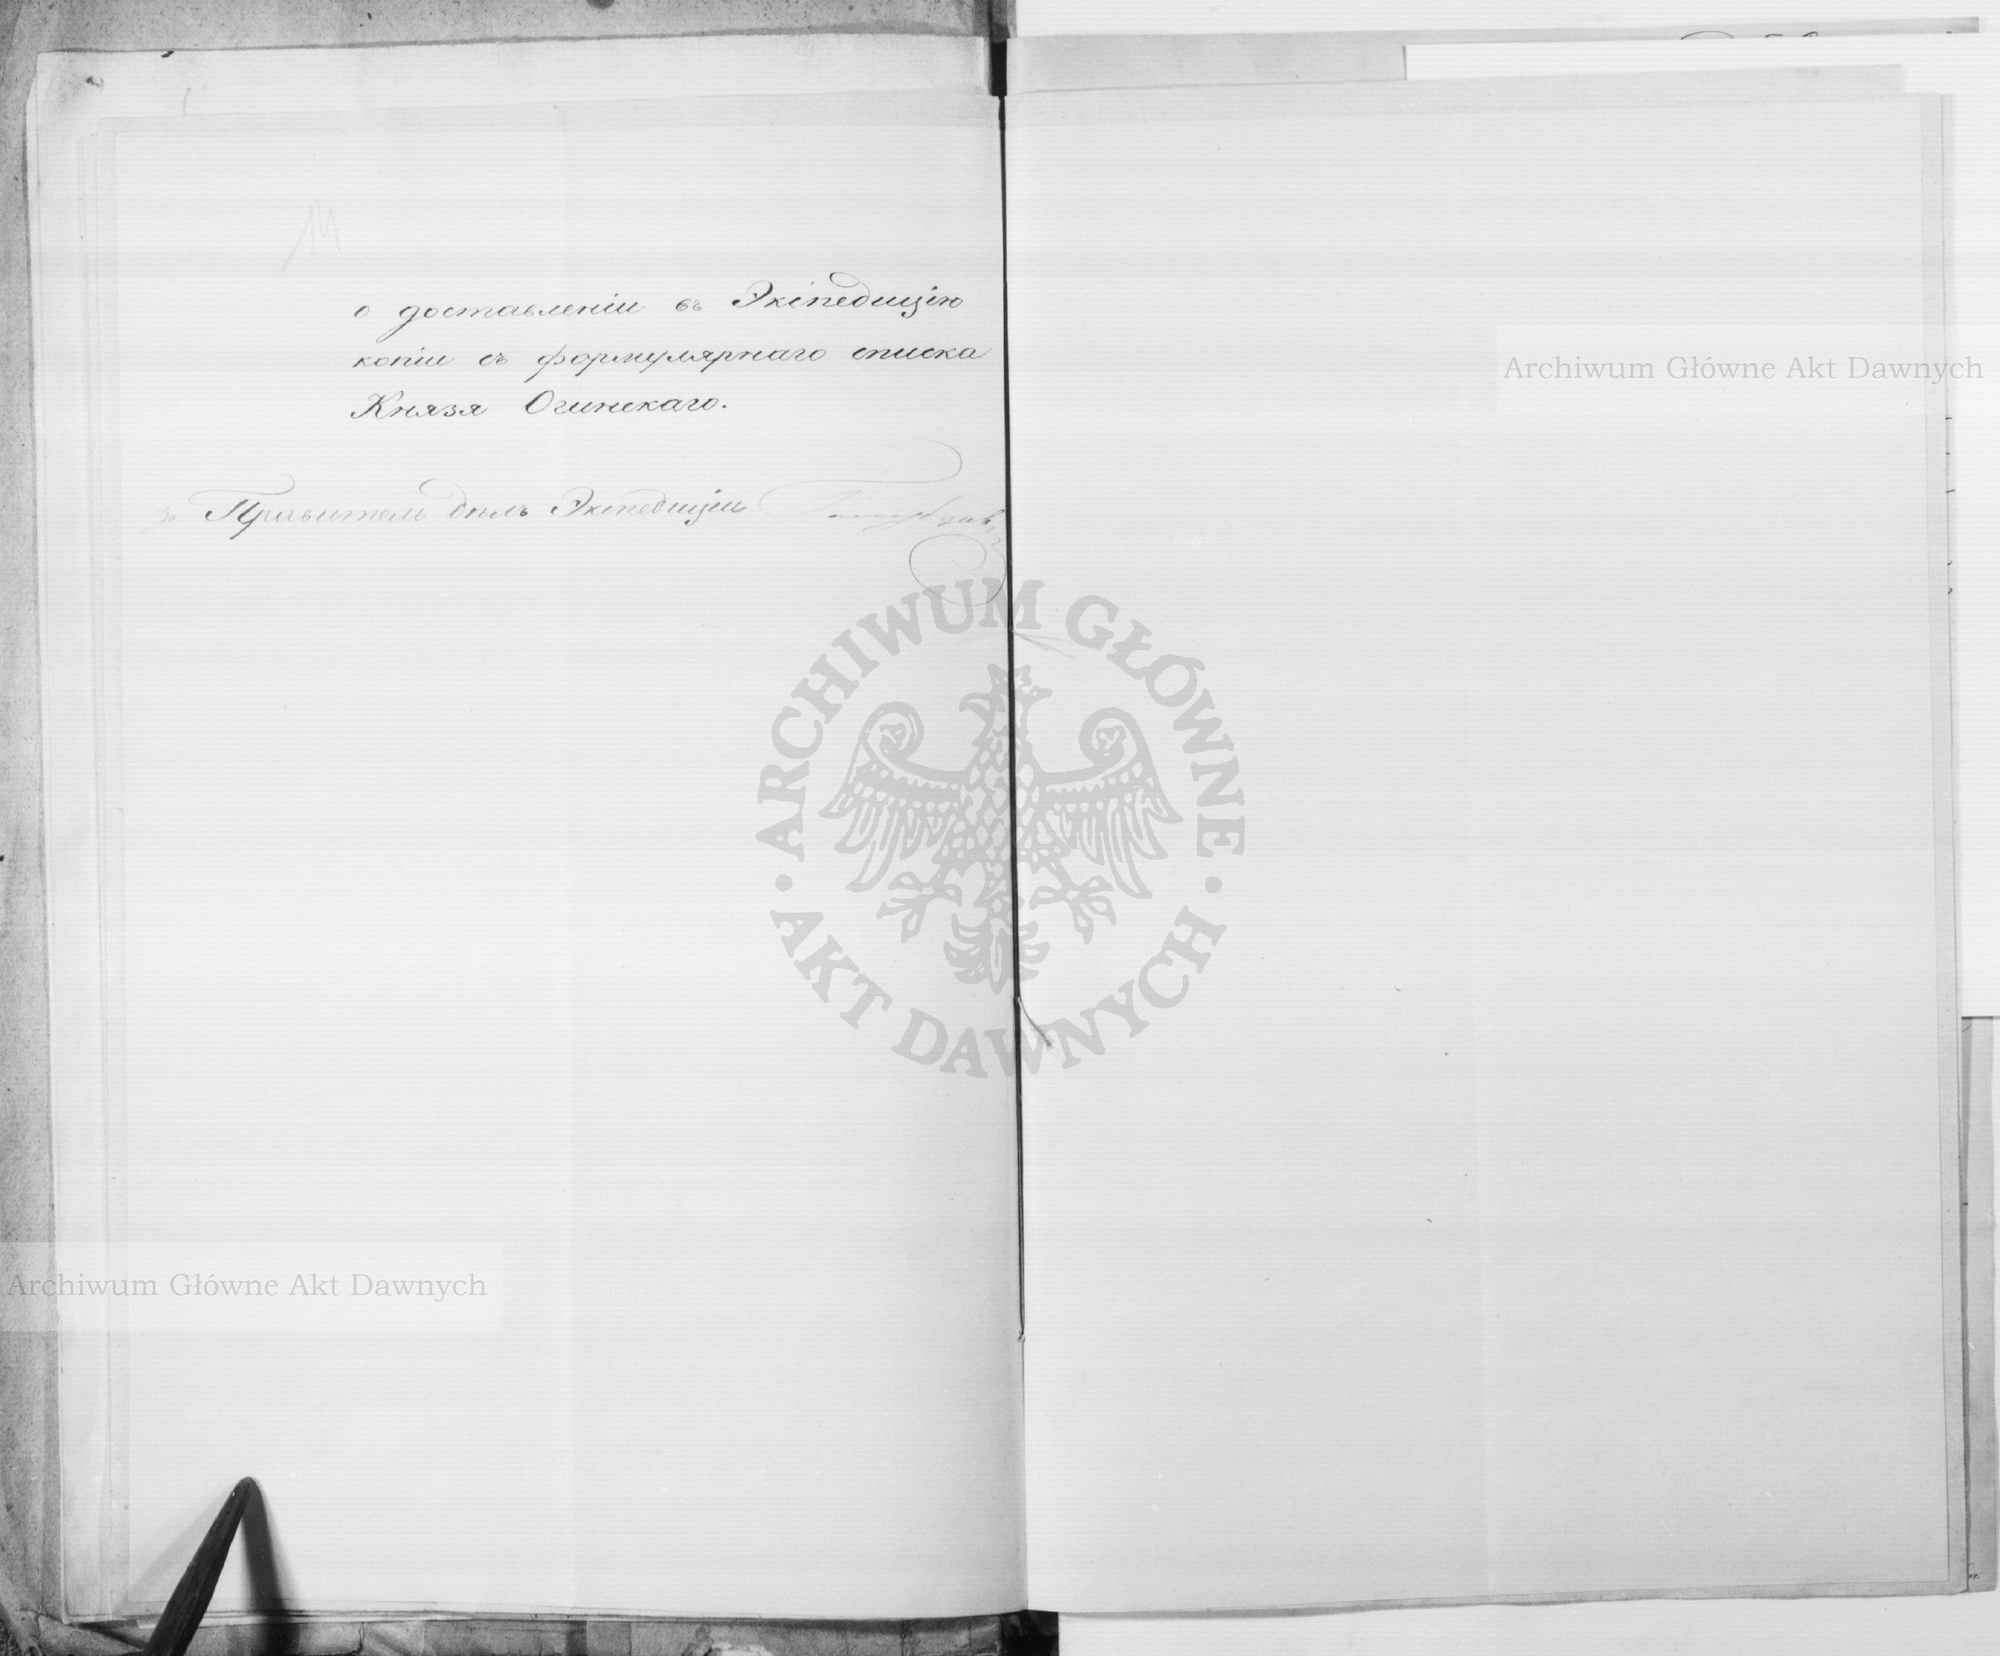 14
о доставленiи въ Экспедицiю
копiи съ формулярнаго списка
Князя Огинскаго.
за Правитель дѣлъ Экспедицiи
Archiwum Główne Akt Dawnych
ARCHIWUM GŁÓWNE
AKT DAWNYCH
Archiwum Główne Akt Dawnych